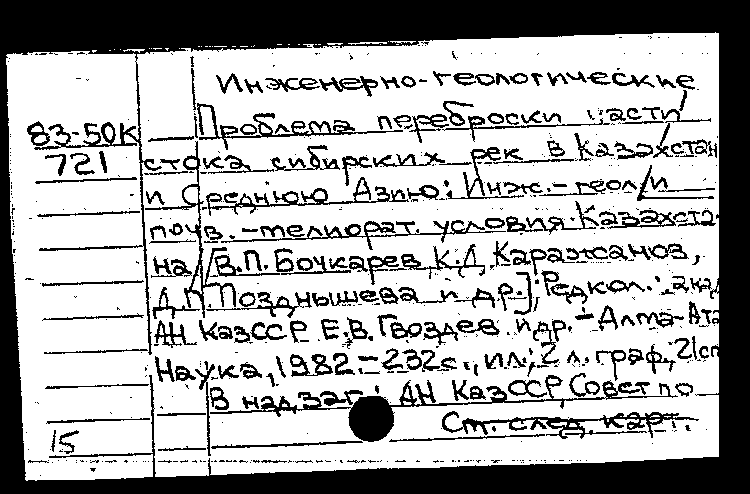 Инженерно-геологические
83-50К Проблема переброски части
721 стока сибирских рек в Казахстан
и Среднюю Азию: Инж.-геол. и
почв.-мелиорат. условия Казахста-
на / [В.П. Бочкарев, К.Д. Каражанов,
Д.П. Позднышева и др.]; Редкол.: акад.
АН КазССР Е.В. Гвоздев и др. - Алма-Ата
Наука, 1982. - 232с., ил.; 2 л. граф.; 21с
В надзаг.: АН КазССР, Совет по
15 См. след. карт.